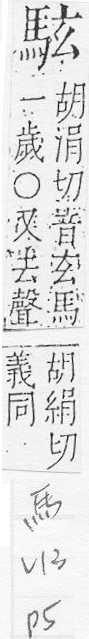 駭
胡涓切音玄馬
一歲○又去聲
胡絹切
義同
馬
V13
P5